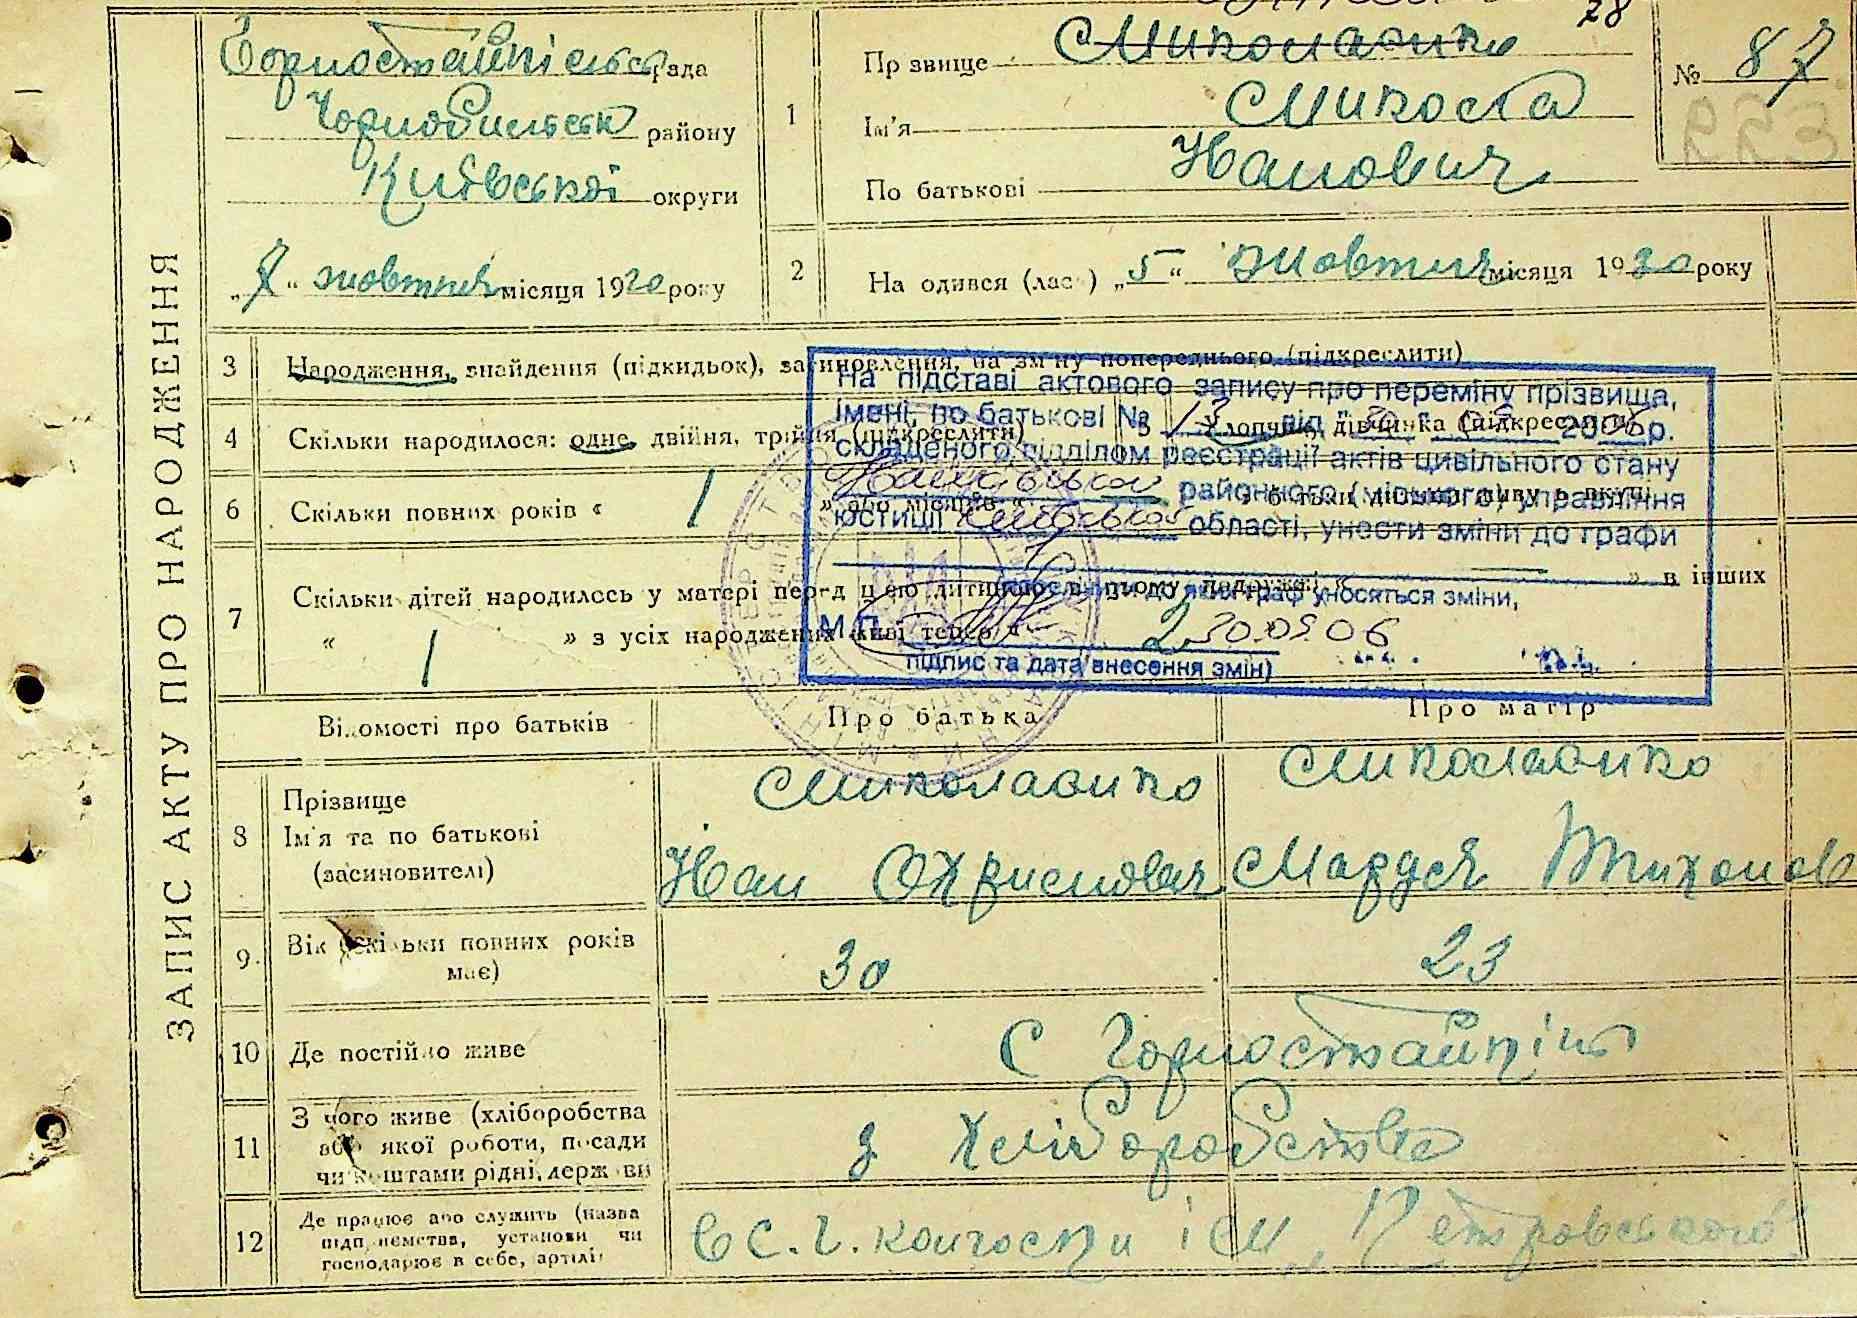 ЗАПИС АКТУ ПРО НАРОДЖЕННЯ
Горностайпільська рада
Чорнобильськ району
Київської округи
„7“ жовтня місяця 1930 року
28
№ 87
1
Пр звище Миколаєнко
Ім'я Микола
По батькові Іванович
2
На одився (лась) „5“ жовтня місяця 1930 року
3 Народження, знайдення (підкидьок), засиновлення, на зм ну попереднього (підкреслити)
4 Скільки народилося: одне, двійня, трійня (підкреслити)
5 хлопчик, дівчинка (підкреслити)
6 Скільки повних років « 1 » або місяців «
7 Скільки дітей народилось у матері перед цією дитиною в цьому подружжі « » в інших
« 1 » з усіх народжених живі тепер « 2
На підставі актового запису про переміну прізвища,
імені, по батькові № 13 від 30 05 2006 р.
складеного відділом реєстрації актів цивільного стану
районного (міського) управління
юстиції Київської області, унести зміни до графи
1
М.П. 30.05.06
підпис та дата внесення змін)
Відомості про батьків
Про батька
Про матір
8
Прізвище
Ім'я та по батькові
(засиновителі)
Миколаєнко
Миколаєнко
Іван
Маруся Тихонов
9. Вік (скільки повних років має) 30 23
10 Де постійно живе С Горностайпіль
11 З чого живе (хліборобства
або якої роботи, посади
чи коштами рідні, держ ви
з хліборобства
12 Де працює або служить (назва
підп иємства, установи чи
господарює в себе, артілі
в с. г. колгоспі ім „Петровського“